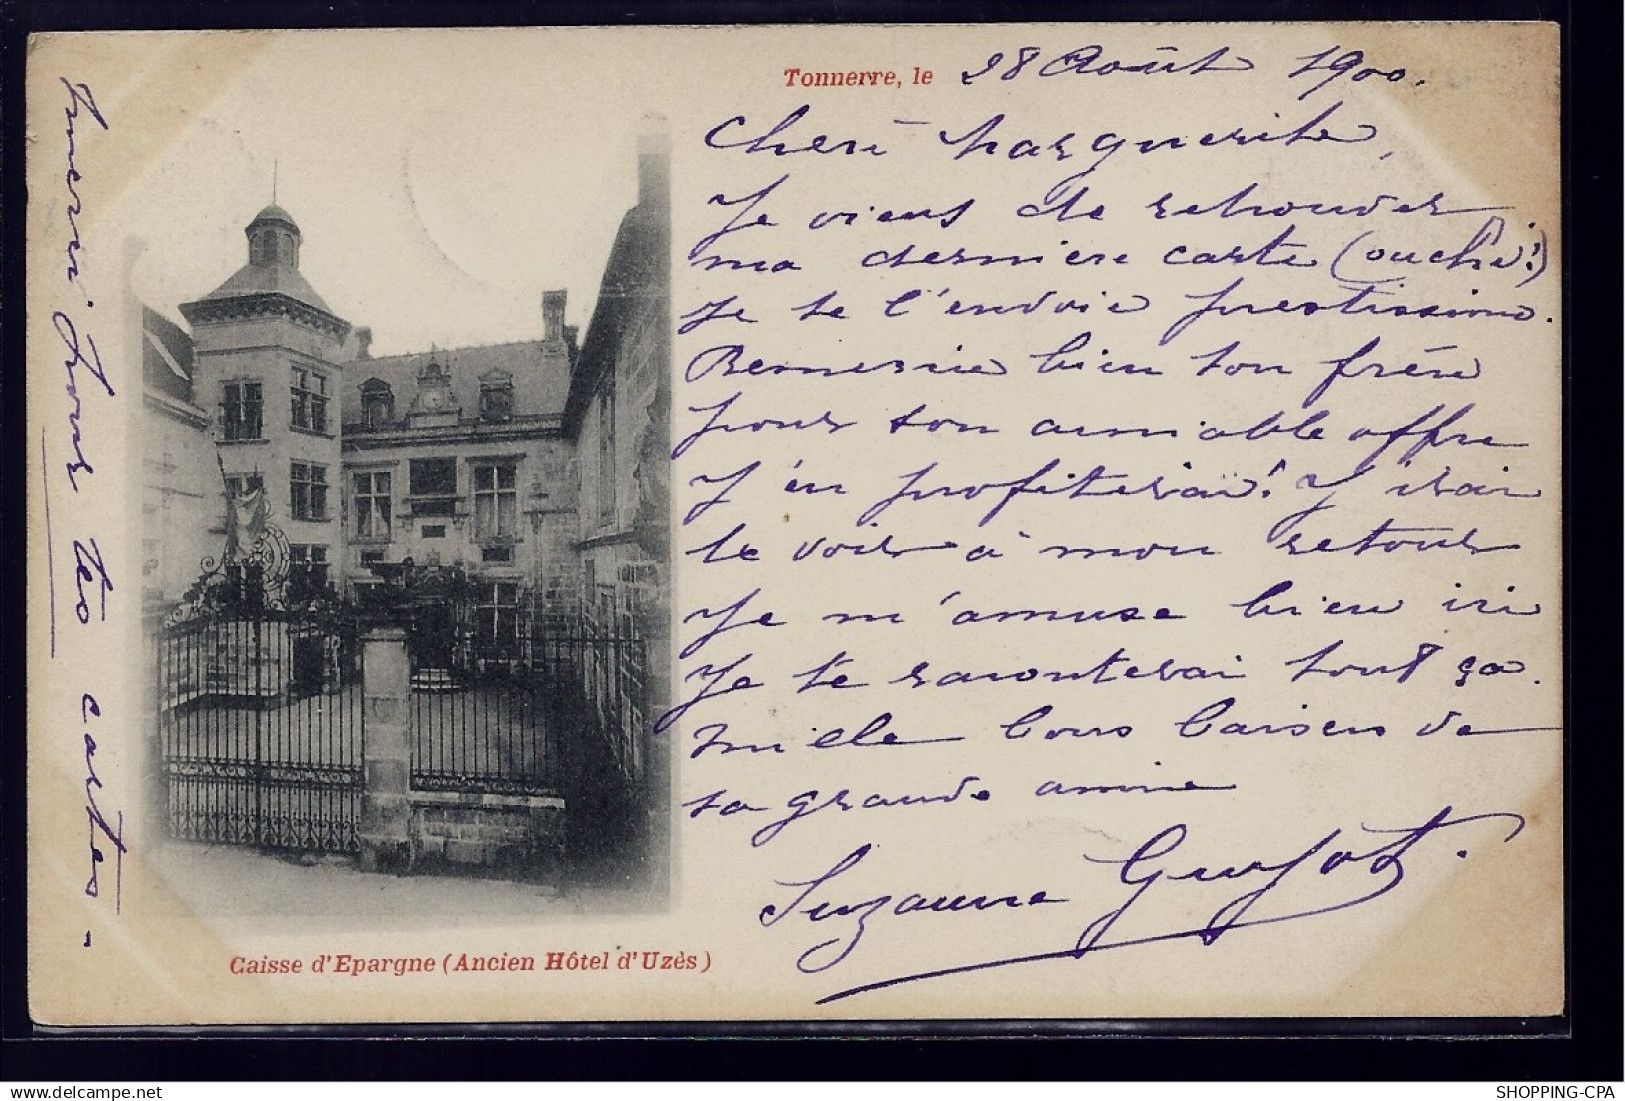 Tonnerre, le 28 Août 1900.
Cheré Marguerite,
Je viens de retrouver
ma dernière carte (ouché!)
Je te l'envoie prestissimo.
Remercie bien ton frère
pour son aimable offre
J'en profiterai! J'irai
le voir à mon retour
Je m'amuse bien ici
Je te raconterai tout ça.
Mille bons baisers de
ta grande amie
Suzanne Guyot.
Merci pour tes cartes -
Caisse d'Epargne (Ancien Hôtel d'Uzès)
SHOPPING-CPA